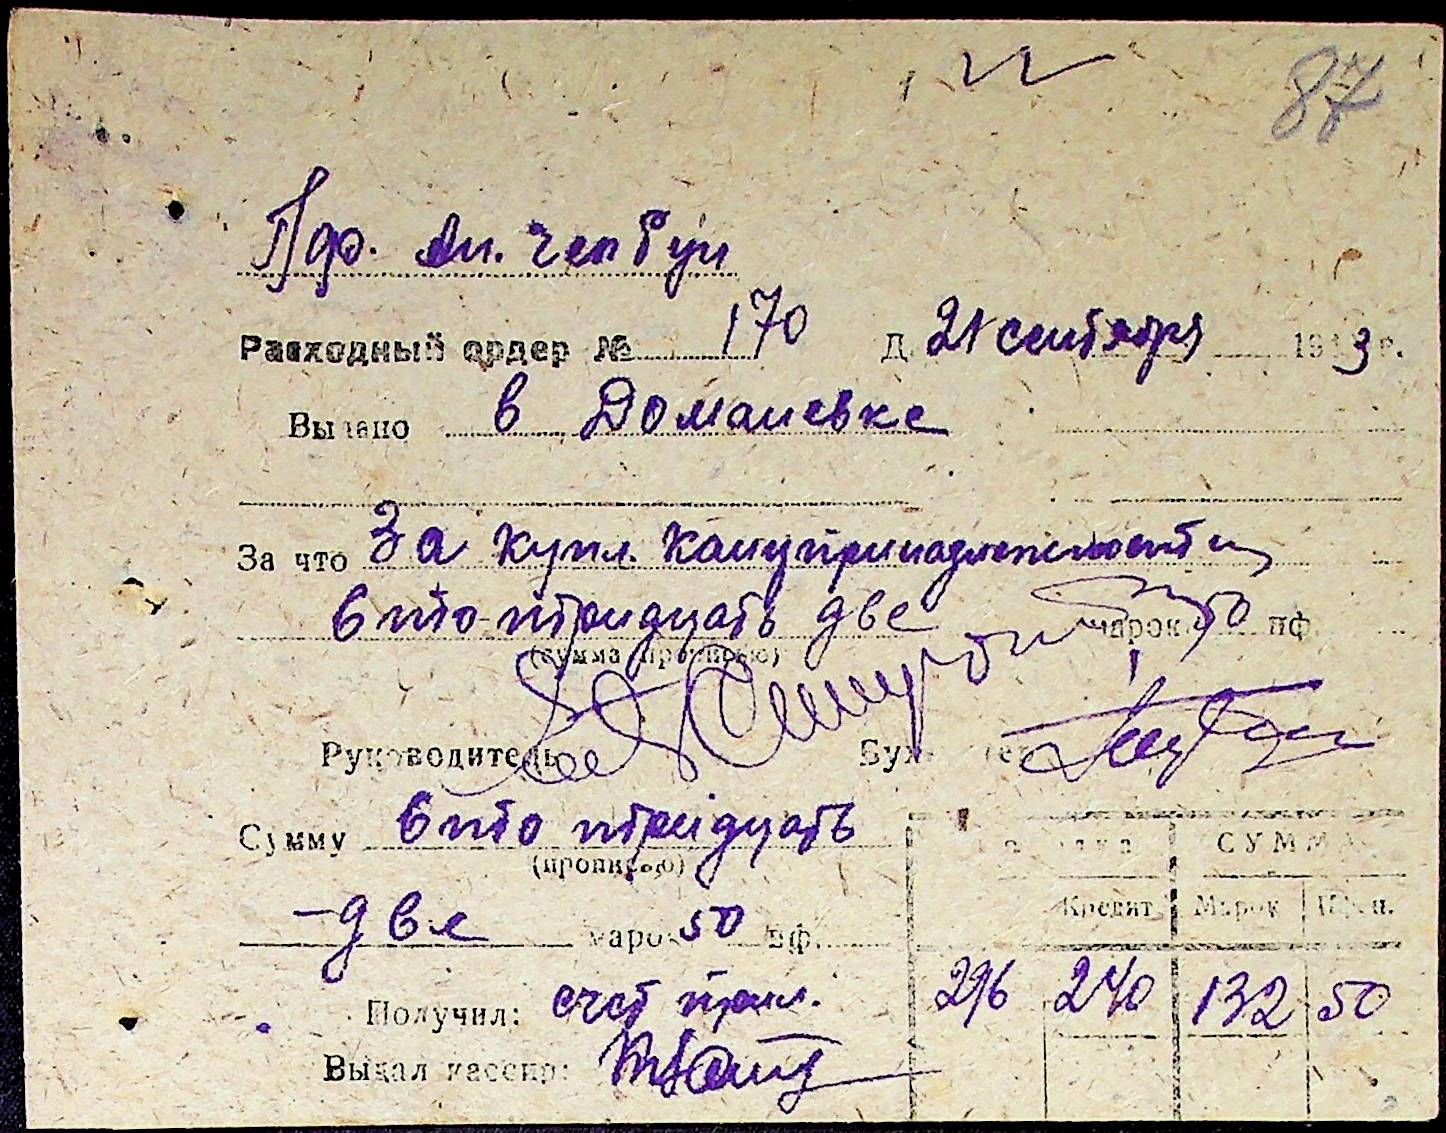 87
Расходный ордер № 170 Д. 21 сентября 1943 г.
Выдано в Доманевке
За что За купл. канцпринадлежности
Сто тридцать две марок 50 пф.
(сумма прописью)
Руководитель Бухгалтер
Сумму Сто тридцать
(прописью)
- две марок 50 пф.
СУММА
Кредит Марок Пфен.
296 240 132 50
Получил: счет прил.
Выдал кассир: